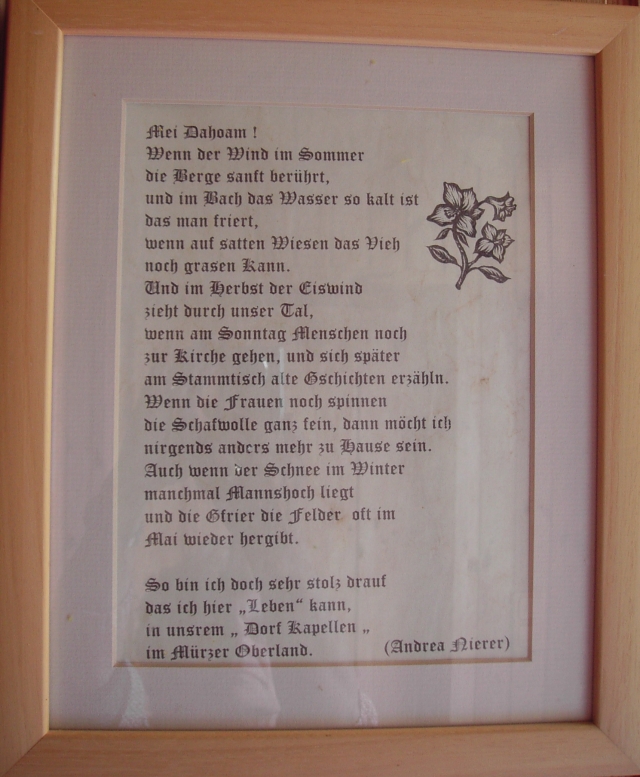 Mei Dahoam !
Wenn der Wind im Sommer
die Berge sanft berührt,
und im Bach das Wasser so kalt ist
das man friert,
wenn auf satten Wiesen das Vieh
noch grasen Kann.
Und im Herbst der Eiswind
zieht durch unser Tal,
wenn am Sonntag Menschen noch
zur Kirche gehen, und sich später
am Stammtisch alte Gschichten erzähln.
Wenn die Frauen noch spinnen
die Schafwolle ganz fein, dann möcht ich
nirgends anders mehr zu Hause sein.
Auch wenn der Schnee im Winter
manchmal Mannshoch liegt
und die Gfrier die Felder oft im
Mai wieder hergibt.
So bin ich doch sehr stolz drauf
das ich hier „Leben“ kann,
in unsrem „ Dorf Kapellen „
im Mürzer Oberland. (Andrea Nierer)